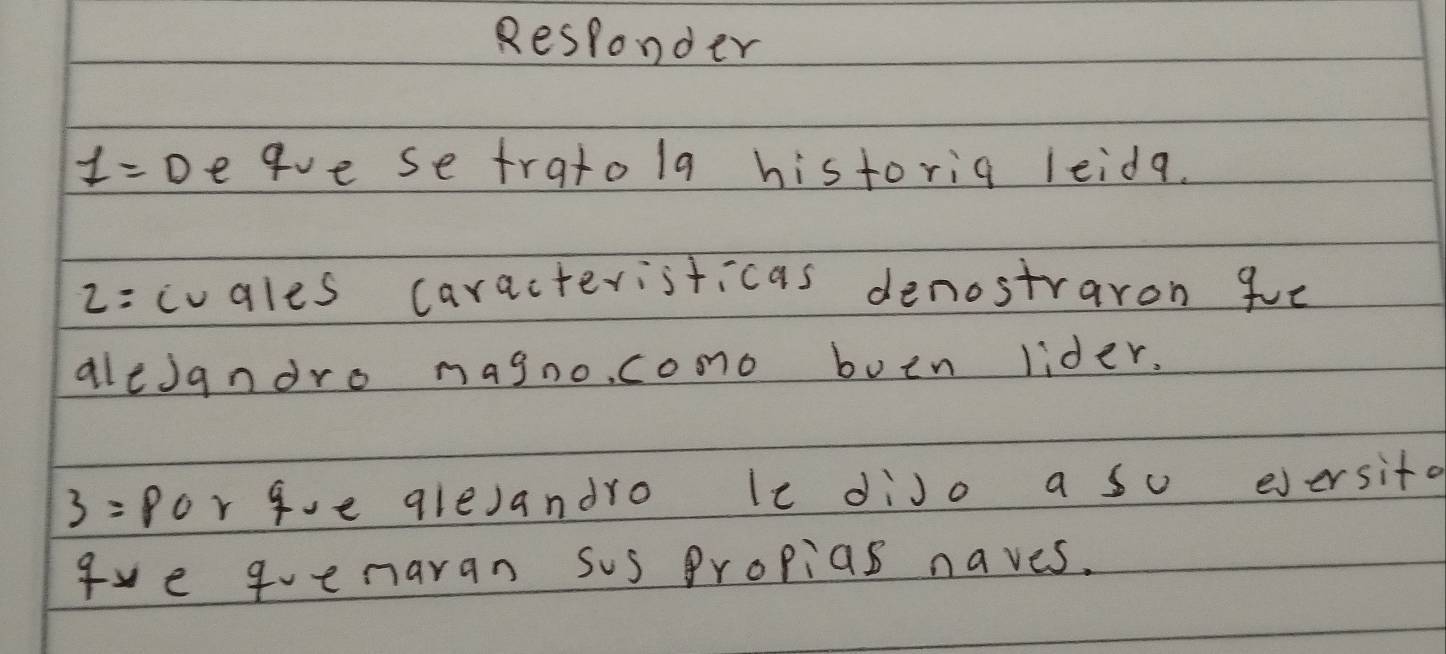 Responder
1= De que se trato la historia leida.
2= cuales caracteristicas denostraron que
alejandro magno. como buen lider.
3= Por que alejandro le dijo a su ejersito
que quemaran sus propias naves.